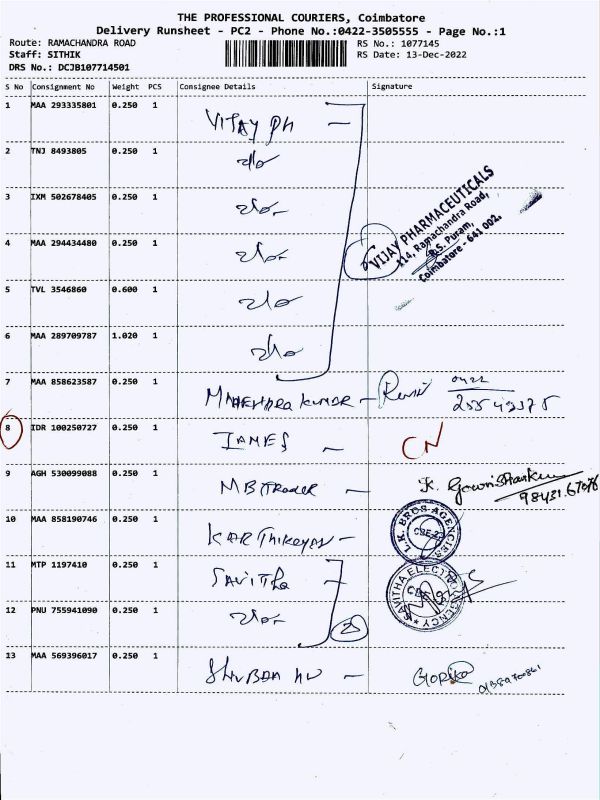 THE PROFESSIONAL COURIERS, Coimbatore
Delivery Runsheet - PC2 - Phone No.:0422-3505555 - Page No.:1
Route: RAMACHANDRA ROAD
RS No.: 1077145
Staff: SITHIK
RS Date: 13-Dec-2022
DRS No.: DCJB107714501
S No Consignment No Weight PCS Consignee Details Signature
1 MAA 293335801 0.250 1 VIJAY PH
2 TNJ 8493805 0.250 1
3 IXM 502678405 0.250 1
4 MAA 294434480 0.250 1
VIJAY PHARMACEUTICALS
114, Ramachandra Road,
R.S. Puram,
Coimbatore - 641 002.
5 TVL 3546860 0.600 1
6 MAA 289709787 1.020 1
7 MAA 858623587 0.250 1 MAHENDRA KUMAR 0422
8 IDR 100250727 0.250 1 JAMES CN
9 AGH 530099088 0.250 1 MB Trader K. Gowri Shankar
10 MAA 858190746 0.250 1 KARThikeyan L.K. BROS AGENCIES
11 MTP 1197410 0.250 1 SAVITha SAVITHA ELECTRO AGENCY
12 PNU 755941090 0.250 1 2
13 MAA 569396017 0.250 1